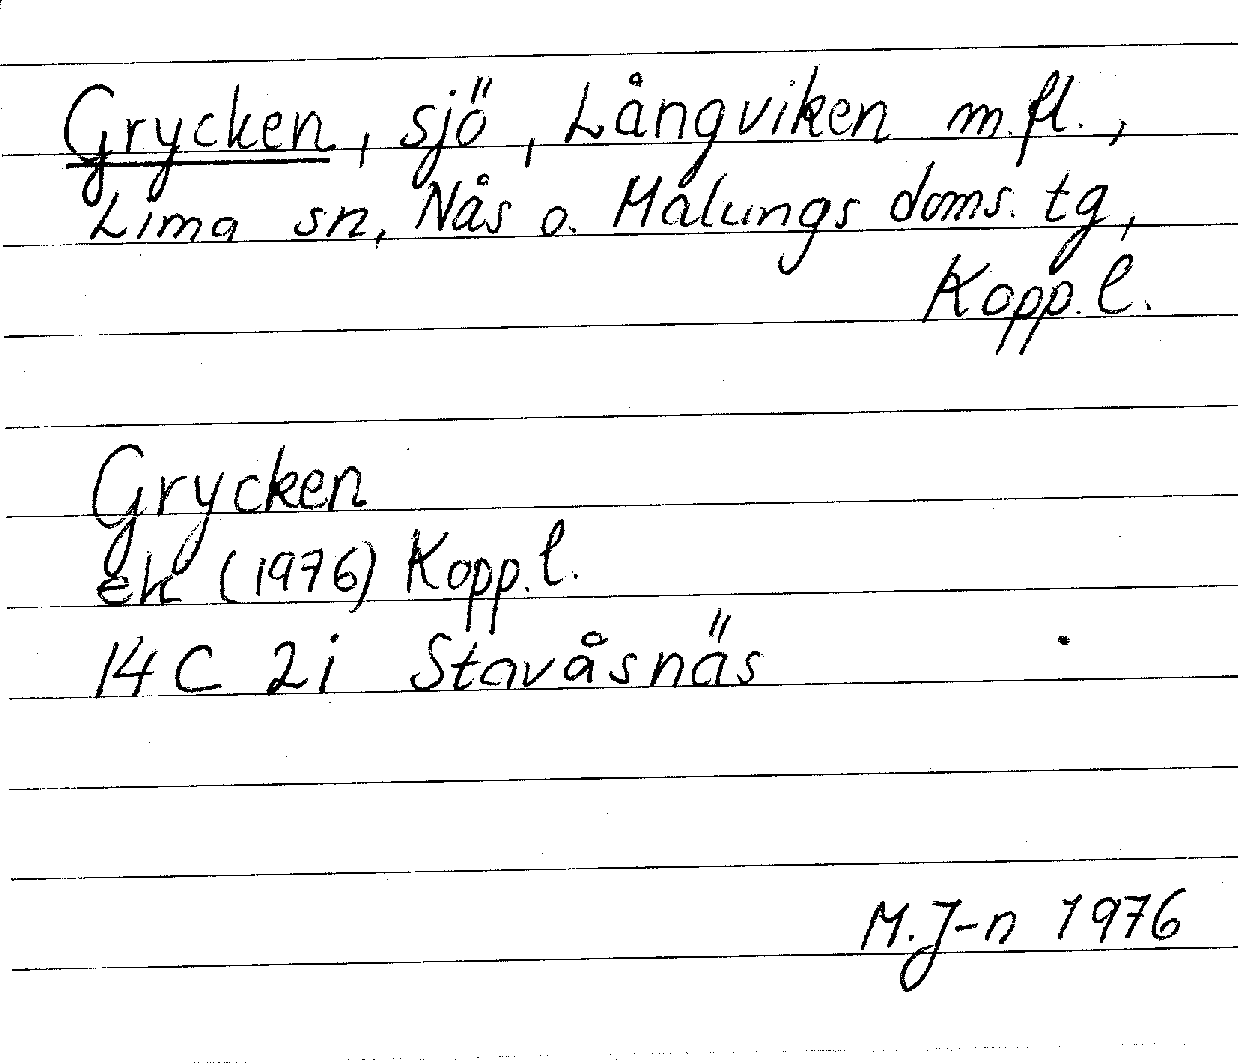 Grycken, sjö, Långviken m.fl.,
Lima sn, Nås o. Malungs doms. tg,
Kopp.l.
Grycken
ek (1976) Kopp.l.
14 C 2i Stavåsnäs
M.J-n 1976